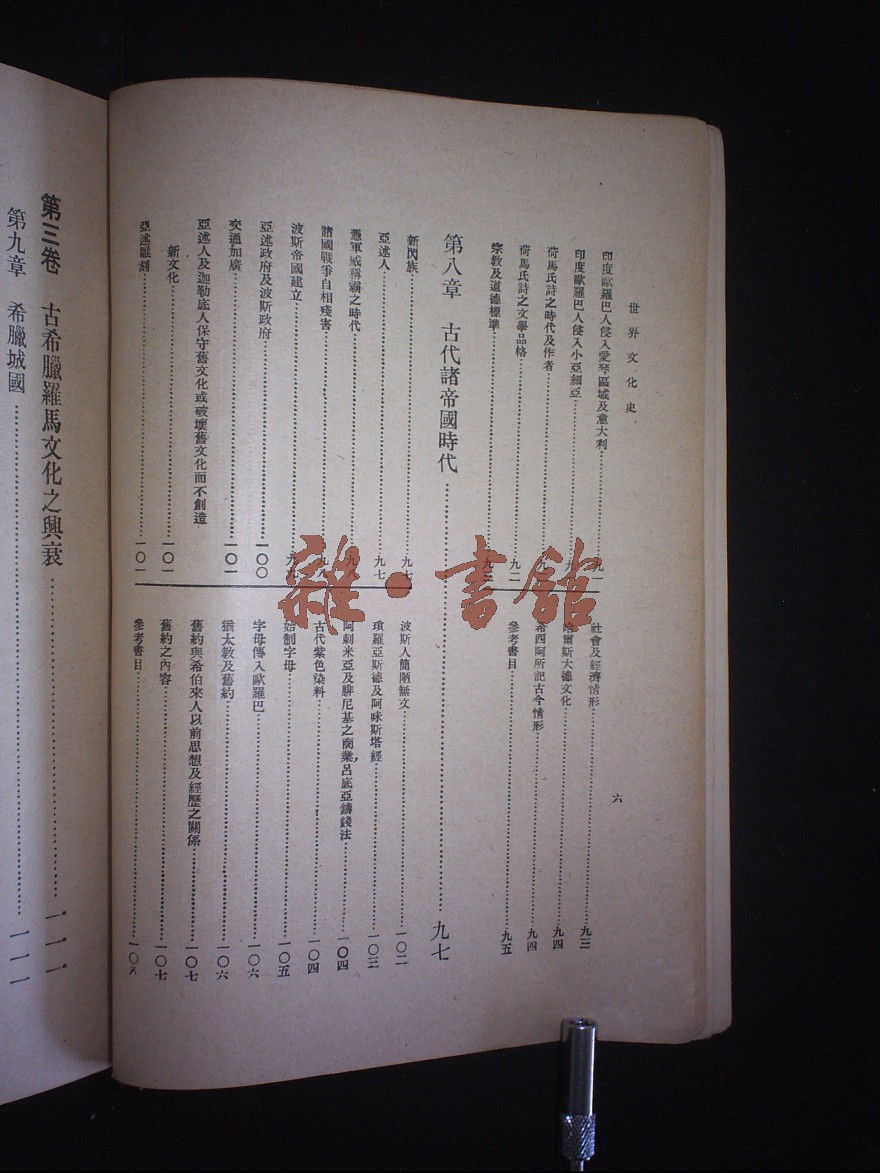 世界文化史
六
印度歐羅巴人侵入愛琴區域及意大利……九一
印度歐羅巴人侵入小亞細亞……九
荷馬氏詩之時代及作者……九
荷馬氏詩之文學品格……九二
宗教及道德標準……九三
社會及經濟情形……九三
哈爾斯大德文化……九四
希西阿所記古今情形……九四
參考書目……九五
第八章 古代諸帝國時代……九七
新閃族……九七
亞述人……九七
憑軍威稱霸之時代……九
諸國戰爭自相殘害……九八
波斯帝國建立……九
亞述政府及波斯政府……一〇〇
交通加廣……一〇一
亞述人及迦勒底人保守舊文化或破壞舊文化而不創造
新文化……一〇一
亞述雕刻……一〇一
波斯人簡陋無文……一〇二
瑣羅亞斯德及阿味斯塔經……一〇三
阿剌米亞及腓尼基之商業，呂底亞鑄錢法……一〇四
古代紫色染料……一〇四
始制字母……一〇五
字母傳入歐羅巴……一〇六
猶太教及舊約……一〇六
舊約與希伯來人以前思想及經歷之關係……一〇七
舊約之內容……一〇七
參考書目……一〇八
第三卷 古希臘羅馬文化之興衰……一一一
第九章 希臘城國……一一一
雜·書館